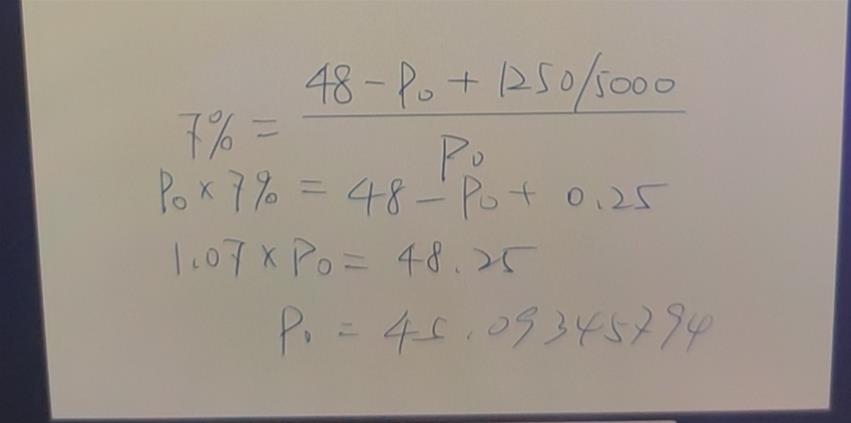 7% = (48 - P₀ + 1250/5000) / P₀
P₀ × 7% = 48 - P₀ + 0.25
1.07 × P₀ = 48.25
P₀ = 45.09345794